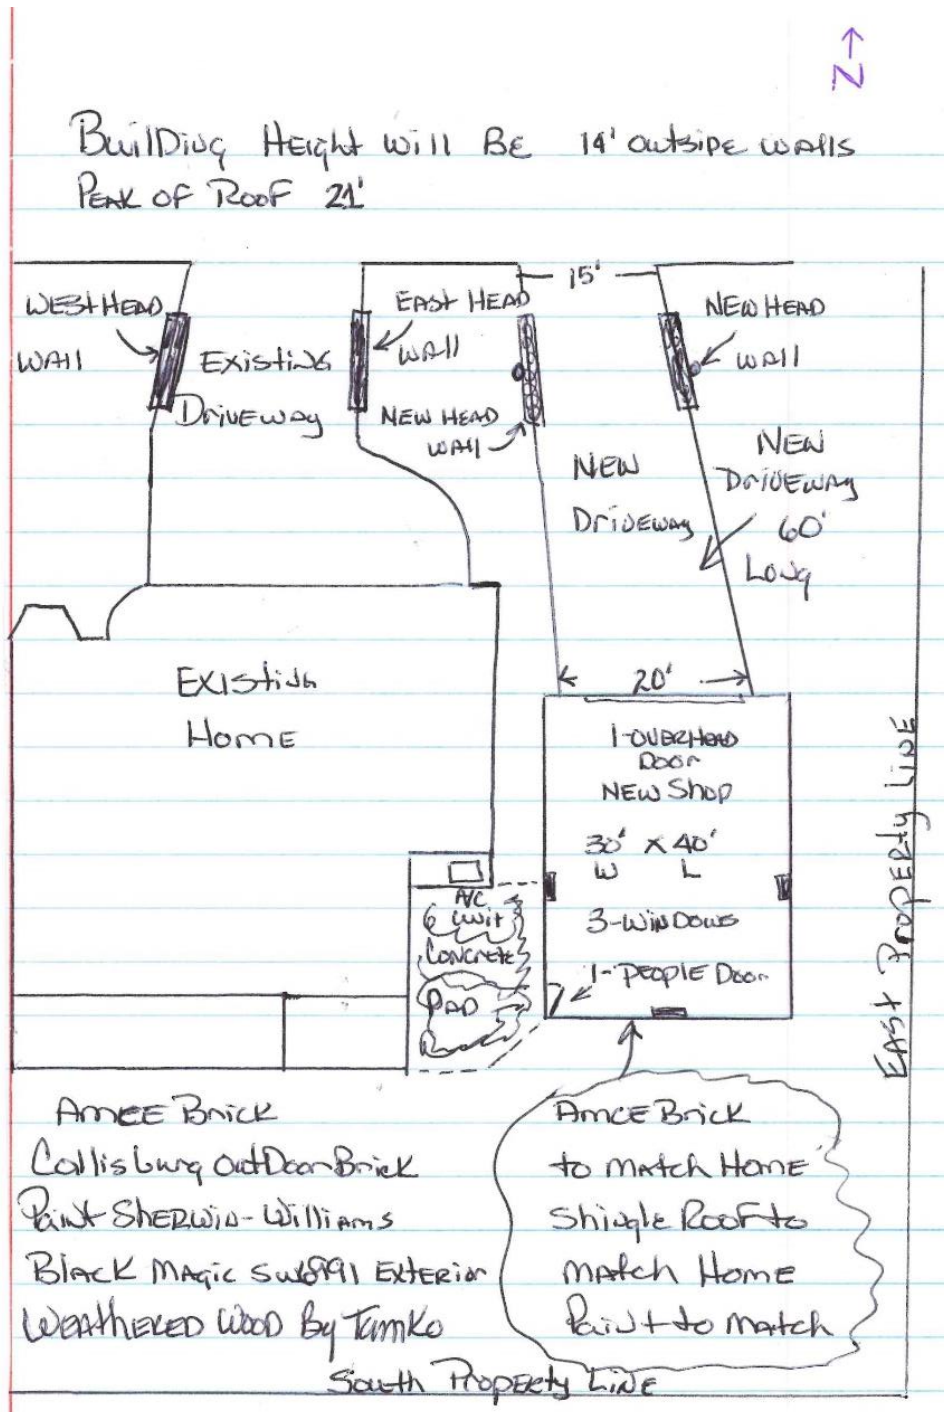 N→
Building Height Will Be 14' outside walls
Peak of Roof 21'
15'
West Head
Wall
Existing
Driveway
East Head
Wall
New Head
Wall
New Head
Wall
New
Driveway
New
Driveway
60'
Long
20'
Existing
Home
1-Overhead
Door
New Shop
30' x 40'
W L
3-Windows
1-People Door
A/C
Unit
Concrete
Pad
East Property Line
Amce Brick
Collisburg outDoor Brick
Paint Sherwin-Williams
Black Magic SW6991 Exterior
Weathered Wood By Tamko
Amce Brick
to match Home
Shingle Roof to
match Home
Paint to match
South Property Line